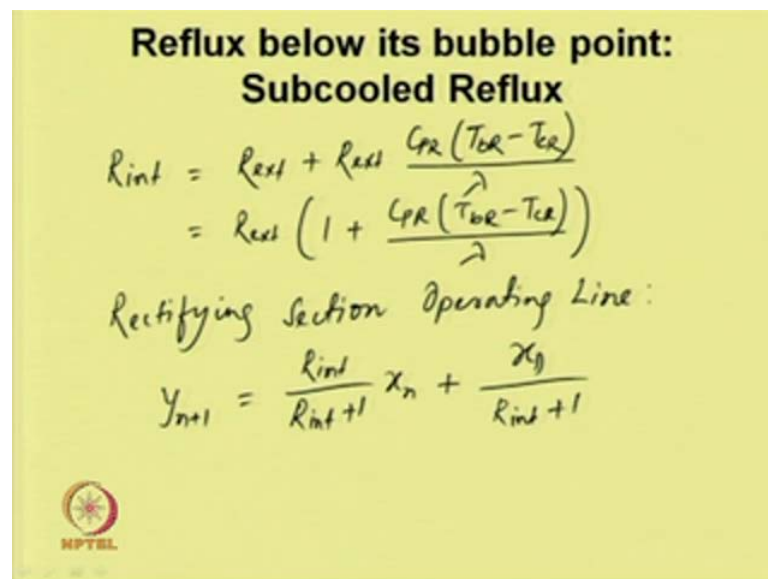 Reflux below its bubble point:
Subcooled Reflux
Rint = Rext + Rext CPR (TbR - TCR) / λ
= Rext (1 + CPR (TbR - TCR) / λ)
Rectifying Section Operating Line:
yn+1 = Rint / Rint + 1 xn + xD / Rint + 1
NPTEL